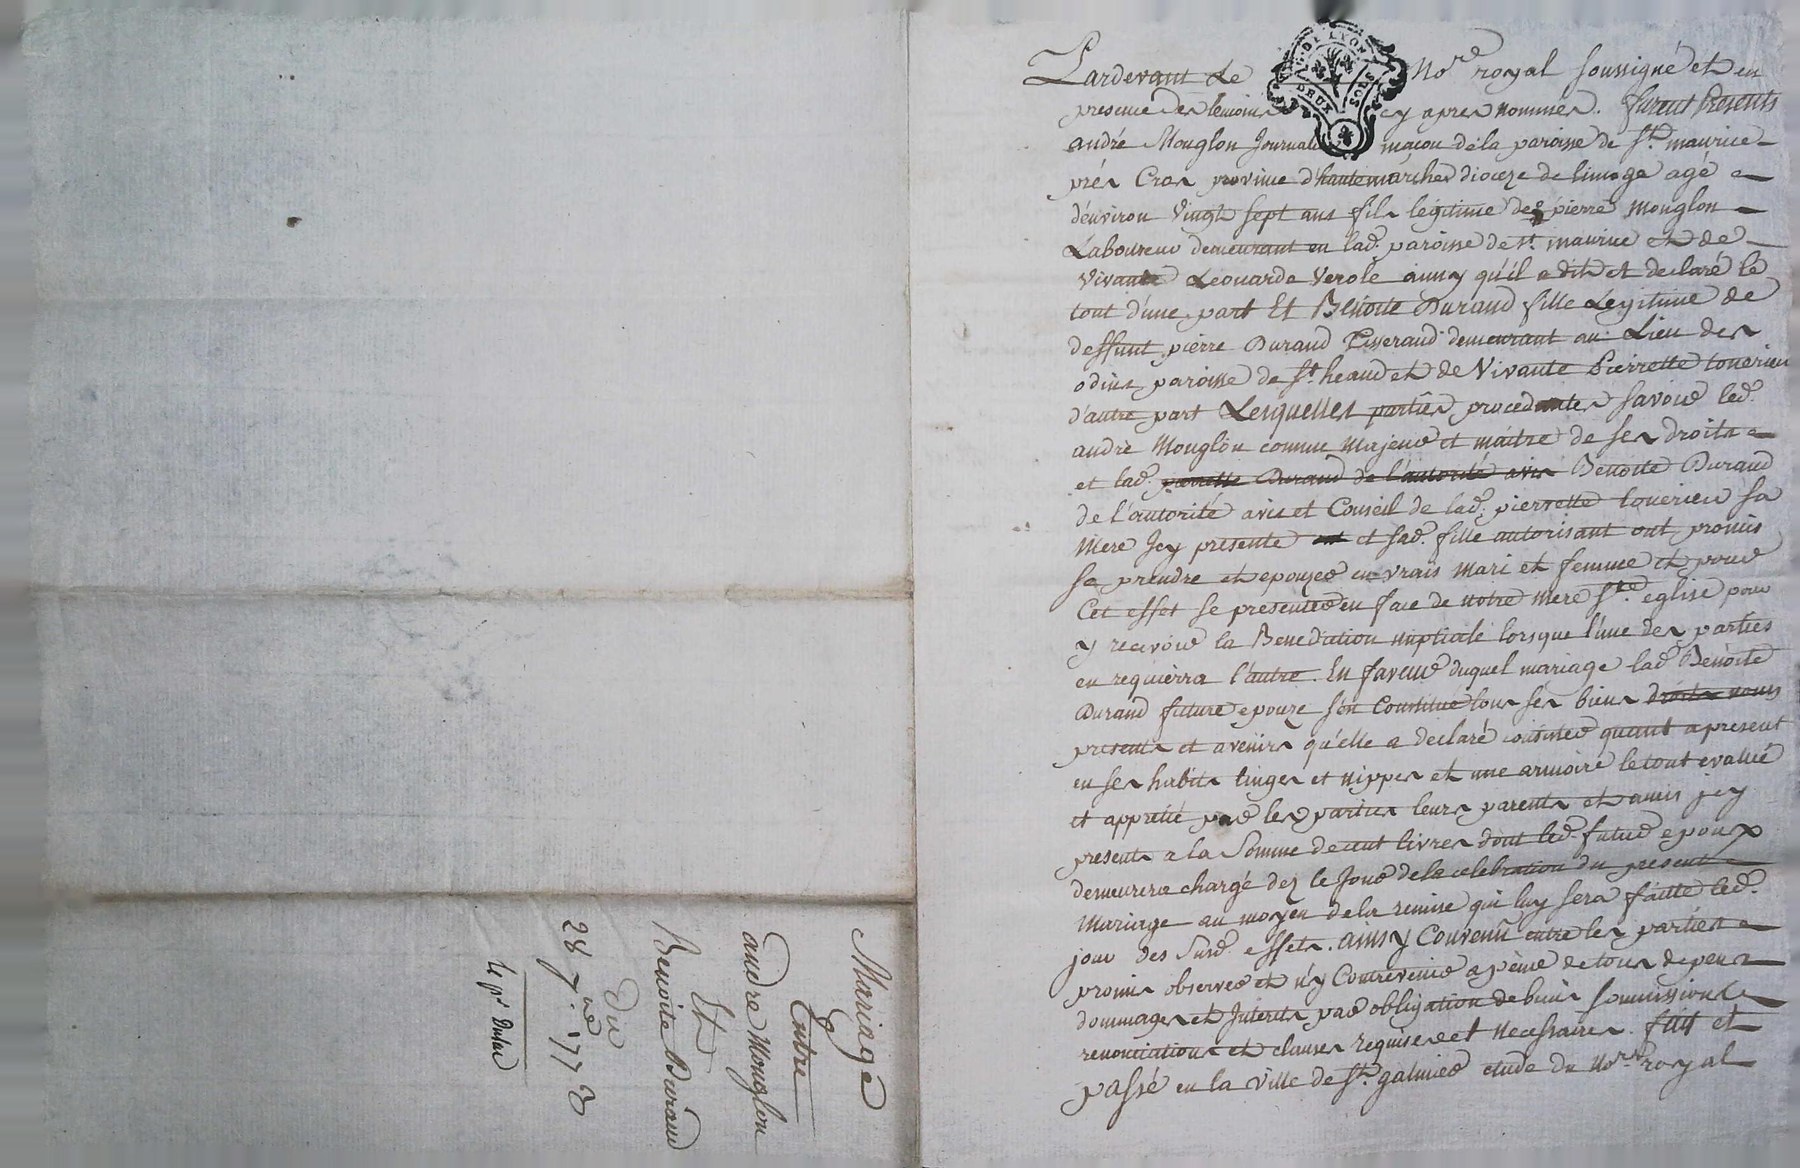 Mariage
Entre
andre Mouglon
Et
Benoite Durand
Du
28 7.bre 1773
G. DE LYON
DEUX SOLS
Pardevant Le No.re royal soussigné et en
presence des temoins cy apres nommés. furent Presents
andré Mouglon Journalier maçon de la paroisse de St. maurice
prés Cros province d'hautemarche diocéze de limoge agé
d'environ vingt sept ans fils legitime de pierre Mouglon
Laboureur demeurant en lad. paroisse de st. maurice et de
vivante Léonarde Verole ainsy qu'il a dit et declaré le
tout d'une part Et Benoite Durand fille Legitime de
deffunt pierre Durand Tisserand demeurant au Lieu des
odins paroisse de St. heand et de Vivante Pierrette touerieu
d'autre part Lesquelles parties procedantes savoir led.
andré Mouglon comme Majeur et maitre de ses droits
et lad. pierrette Durand de l'autorité avis Benoite Durand
de l'autorité avis et Conseil de lad. pierrette touerieu sa
Mere Jcy presente et sad. fille autorisant ont promis
se prendre et epouzer en vrais Mari et femme et pour
Cet effet se presenter en face de notre mere Ste. eglise pour
y recevoir la Benediction nuptiale lorsque l'une des parties
en requierra l'autre. En faveur duquel mariage lad. Benoite
Durand future epouze s'en Constitué tous ses biens droits noms
presents et avenirs qu'elle a declaré consister quant a present
en ses habits linges et nippes et une armoire le tout evalué
et apprétié par les parties leurs parents et amis jcy
presents a la Somme de cent livres dont led. futur epoux
demeurera chargé dez le Jour de la celebration du present
Mariage au moyen de la remise qui luy sera faitte led.
jour des Susd. effets. ainsy Convenu entre les parties
promis observer et n'y Contrevenir a peine de tous depens
dommages et Jnterets par obligation de biens soumissions
renonciations et clauses requises et necessaires. fait et
passé en la ville de St. galmier etude du No.re royal